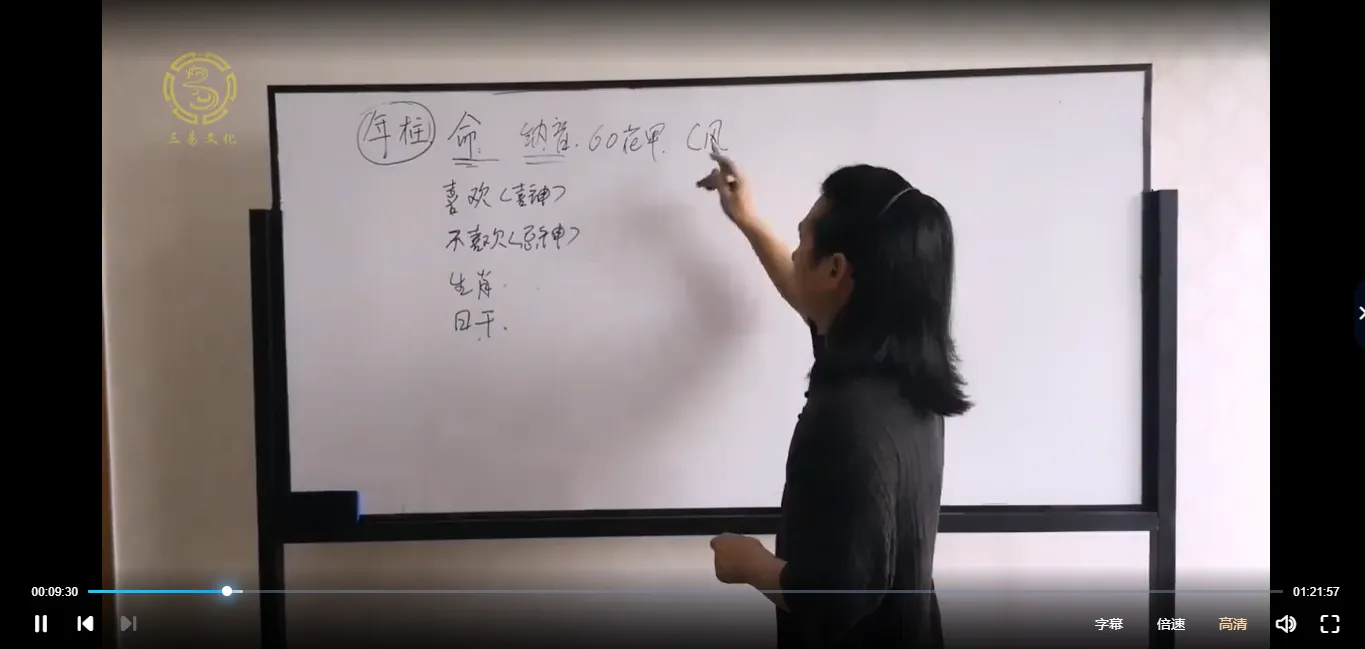 三易文化
年柱 命. 纳音. 60花甲. (风
喜欢(喜神)
不喜欢(忌神)
生肖.
日干.
00:09:30
01:21:57
字幕 倍速 高清